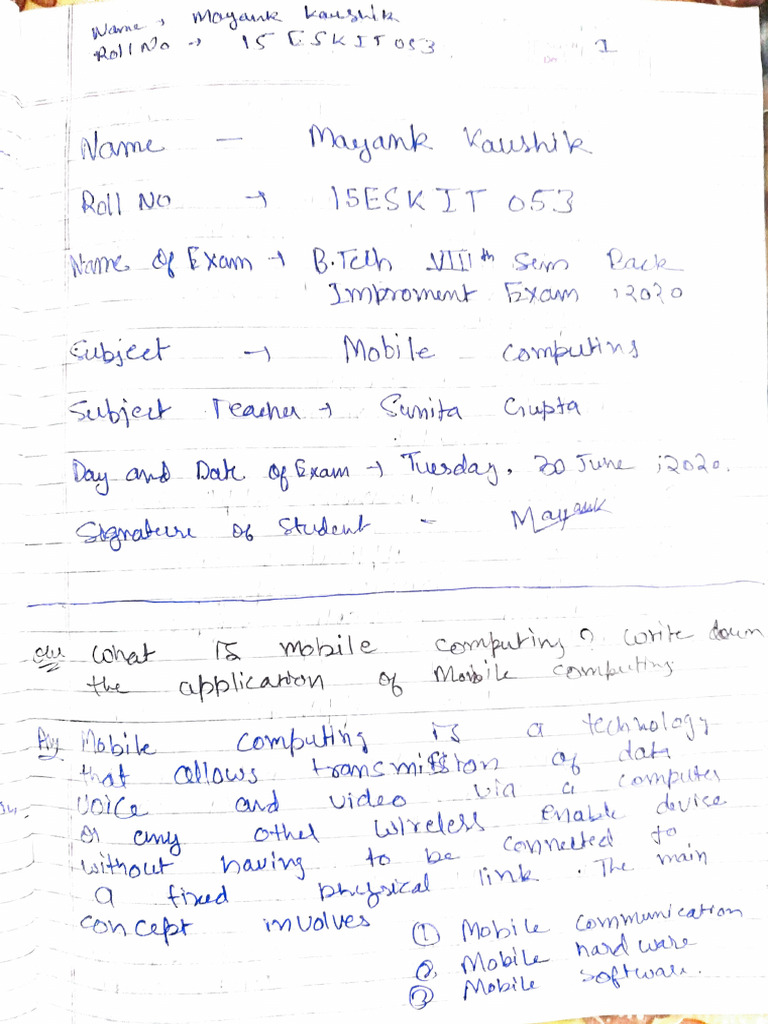 Name → Mayank Kaushik
Roll No → 15ESKIT053
1
Name — Mayank Kaushik
Roll No → 15ESKIT053
Name of Exam → B.Tech VIIIth Sem Back
Improment Exam, 2020
Subject → Mobile Computing
Subject Teacher → Sunita Gupta
Day and Date of Exam → Tuesday, 30 June, 2020.
Signature of Student - Mayank
Qu What is mobile computing? Write down
the application of Mobile computing
Ans Mobile computing is a technology
that allows transmission of data
voice and video via a computer
or any other wireless enable device
without having to be connected to
a fixed physical link. The main
concept involves ① Mobile communication
② Mobile hardware
③ Mobile software.